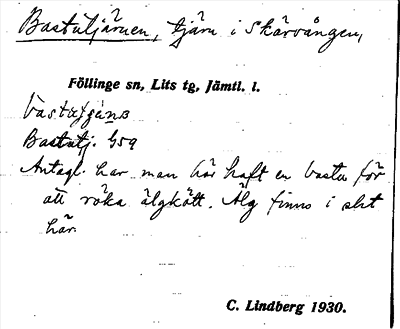 Bastutjärnen, tjärn i Skärvången,
Föllinge sn, Lits tg, Jämtl. l.
Bastutj. G59
Antagl. har man här haft en bastu för
att röka älgkött. Älg finns i sht
här.
C. Lindberg 1930.